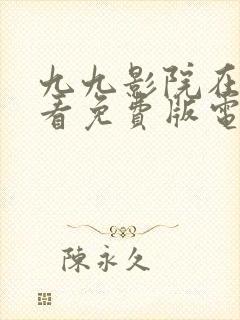 九九影院在
看免費版電
陳永久